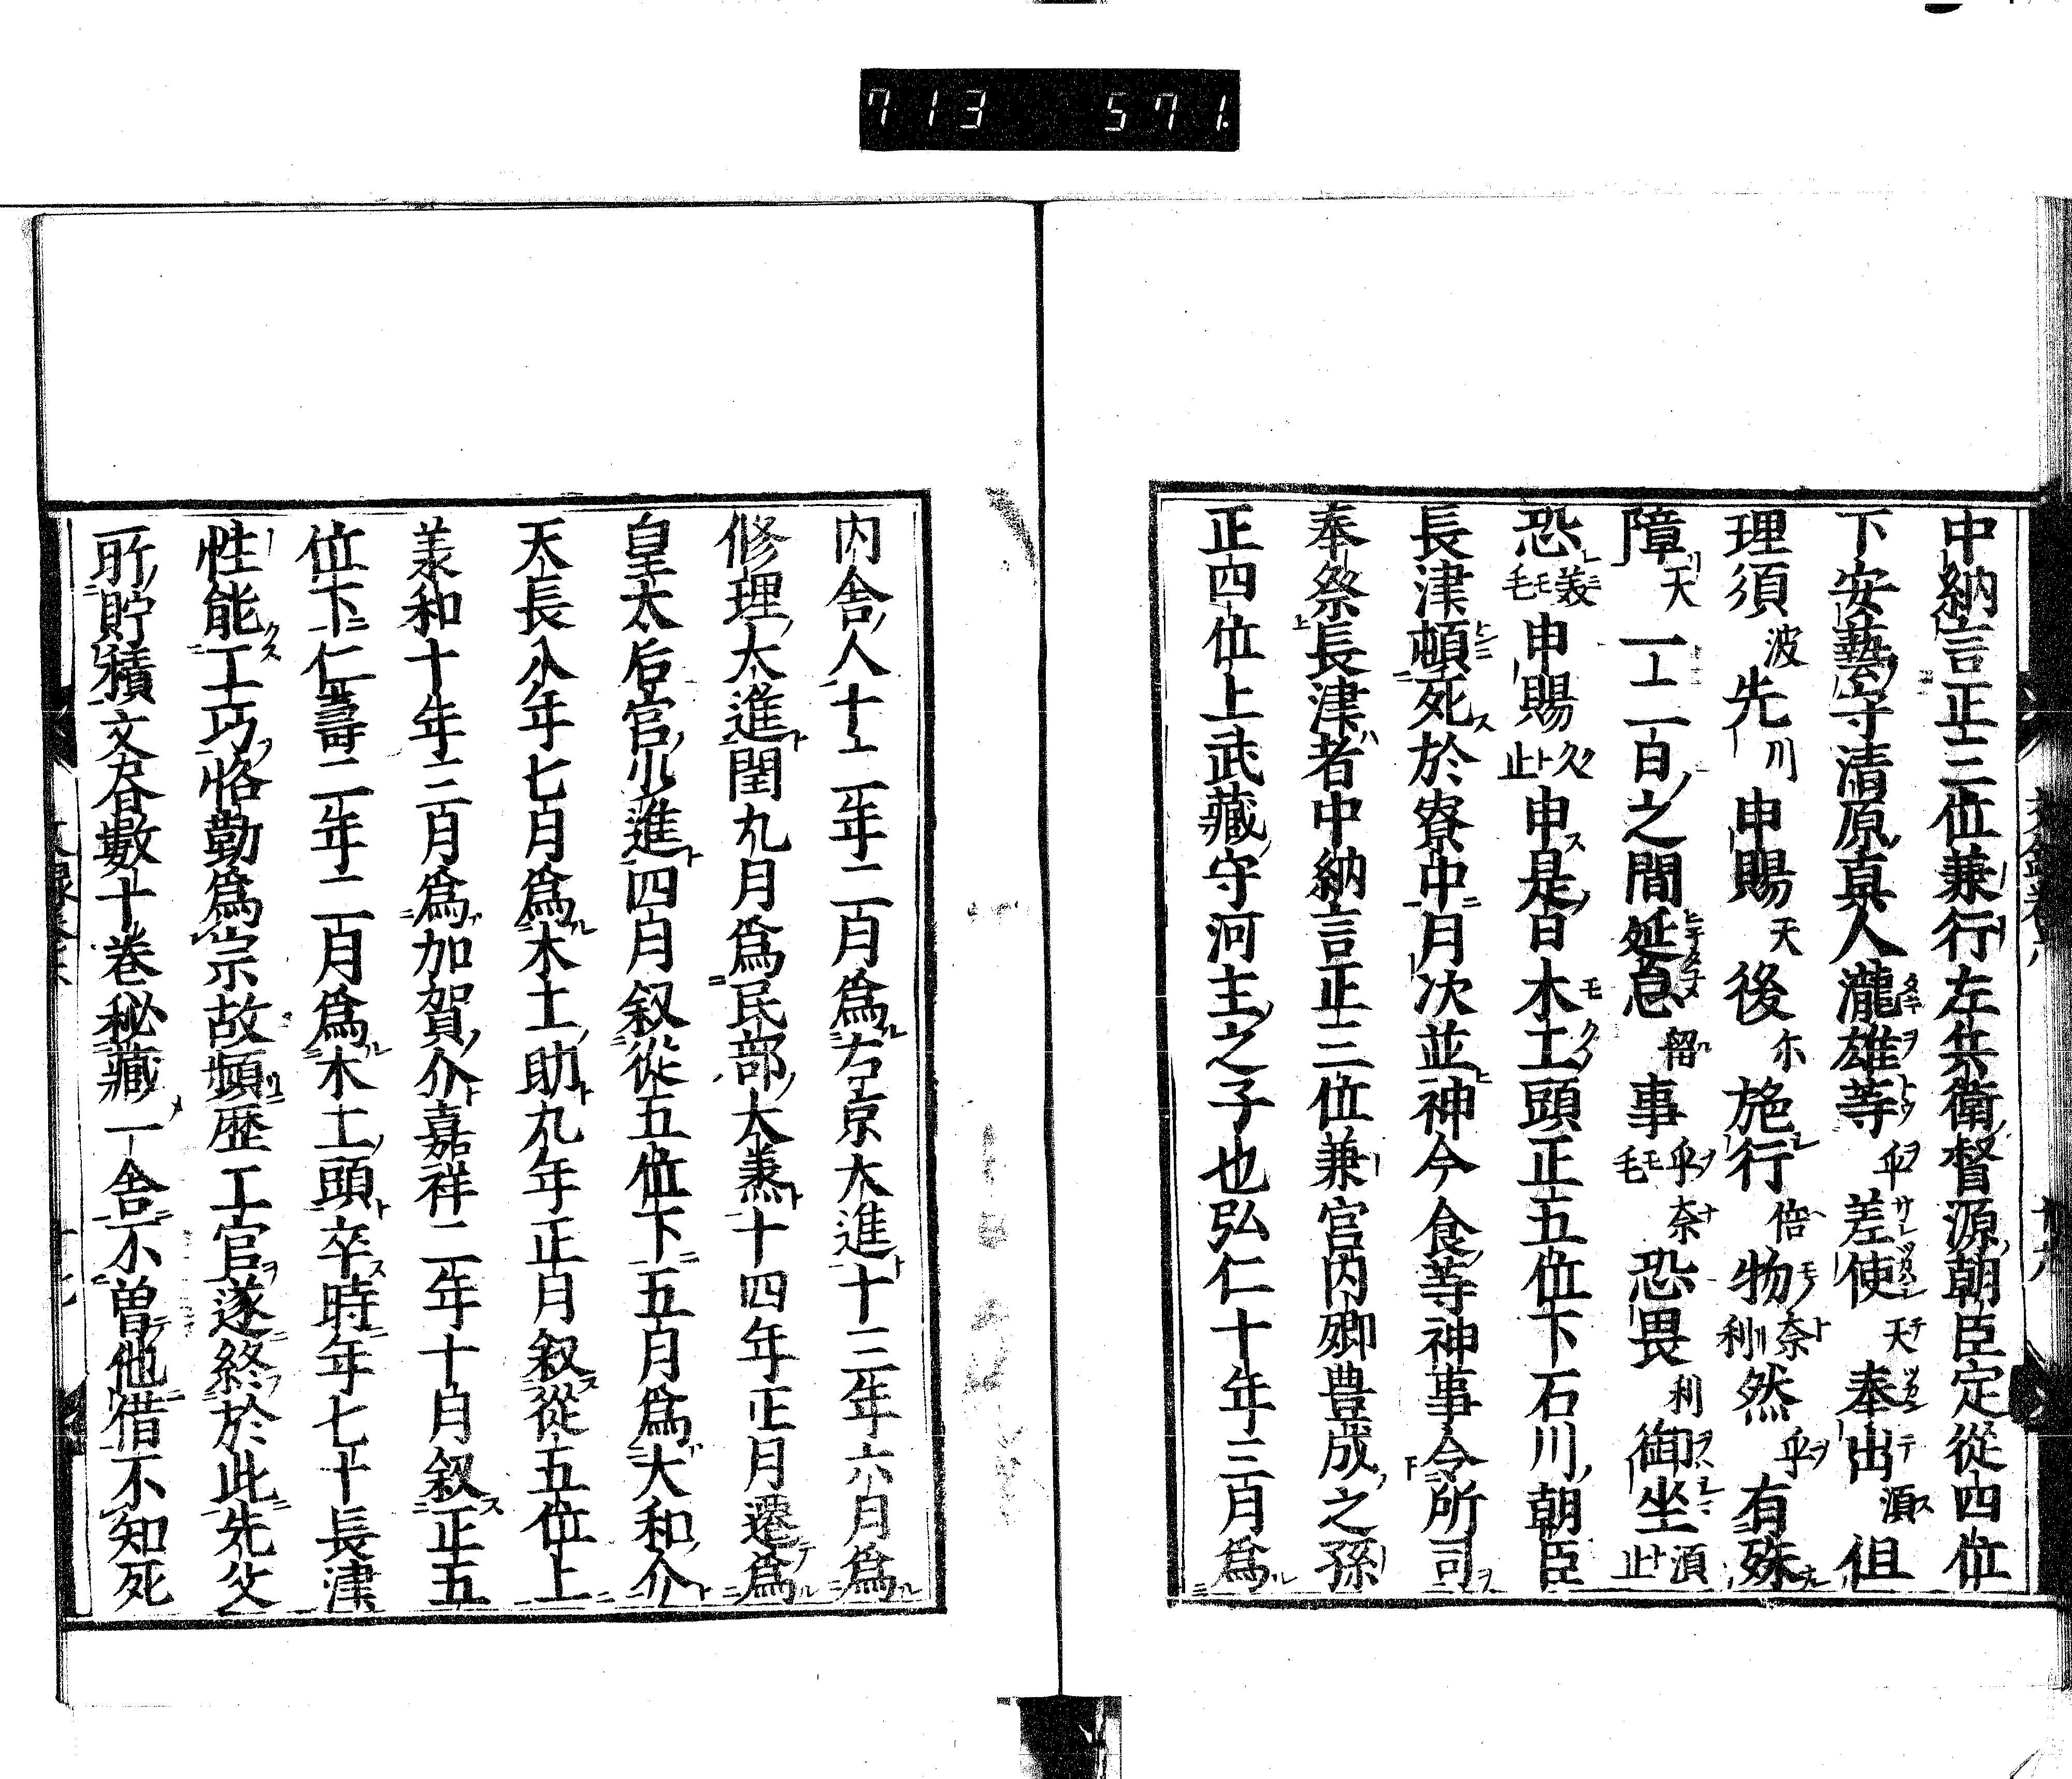 713 571.
中納言正三位兼行左兵衛督源朝臣定從四位
下安藝守清原真人瀧雄等乎差使天奉出湏但
理須波先川申賜天後尓施行倍物奈利然乎有殊
障天一二百之間延怠留事乎毛奈恐畏利御坐湏止
恐美毛申賜久止申是日木工頭正五位下石川朝臣
長津頓死於寮中月次並神今食等神事令所司
奉祭長津者中納言正三位兼宮内卿豊成之孫
正四位上武藏守河主之子也弘仁十年三月為
内舎人十二年二月為右京大進十三年六月為
修理大進閏九月為民部大丞十四年正月遷為
皇太后宮少進四月叙從五位下五月為大和介
天長八年七月為木工助九年正月叙從五位上
承和十年二月為加賀介嘉祥二年十月叙正五
位下仁壽二年二月為木工頭卒時年七十長津
性能工巧恪勤為宗故頻歴工官遂終於此先父
所貯積文書數十巻秘藏一舎不曽他借不知死